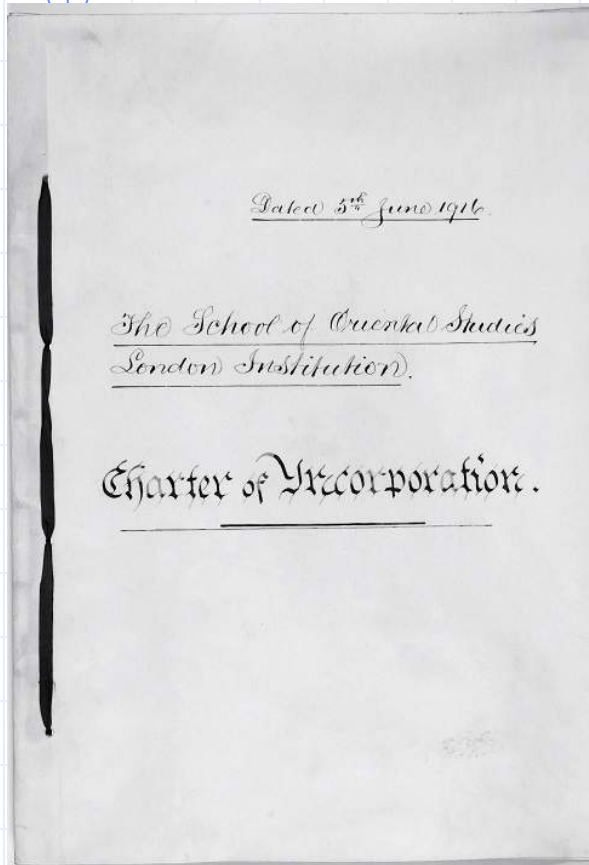 Dated 5th June 1916.
The School of Oriental Studies
London Institution.
Charter of Incorporation.